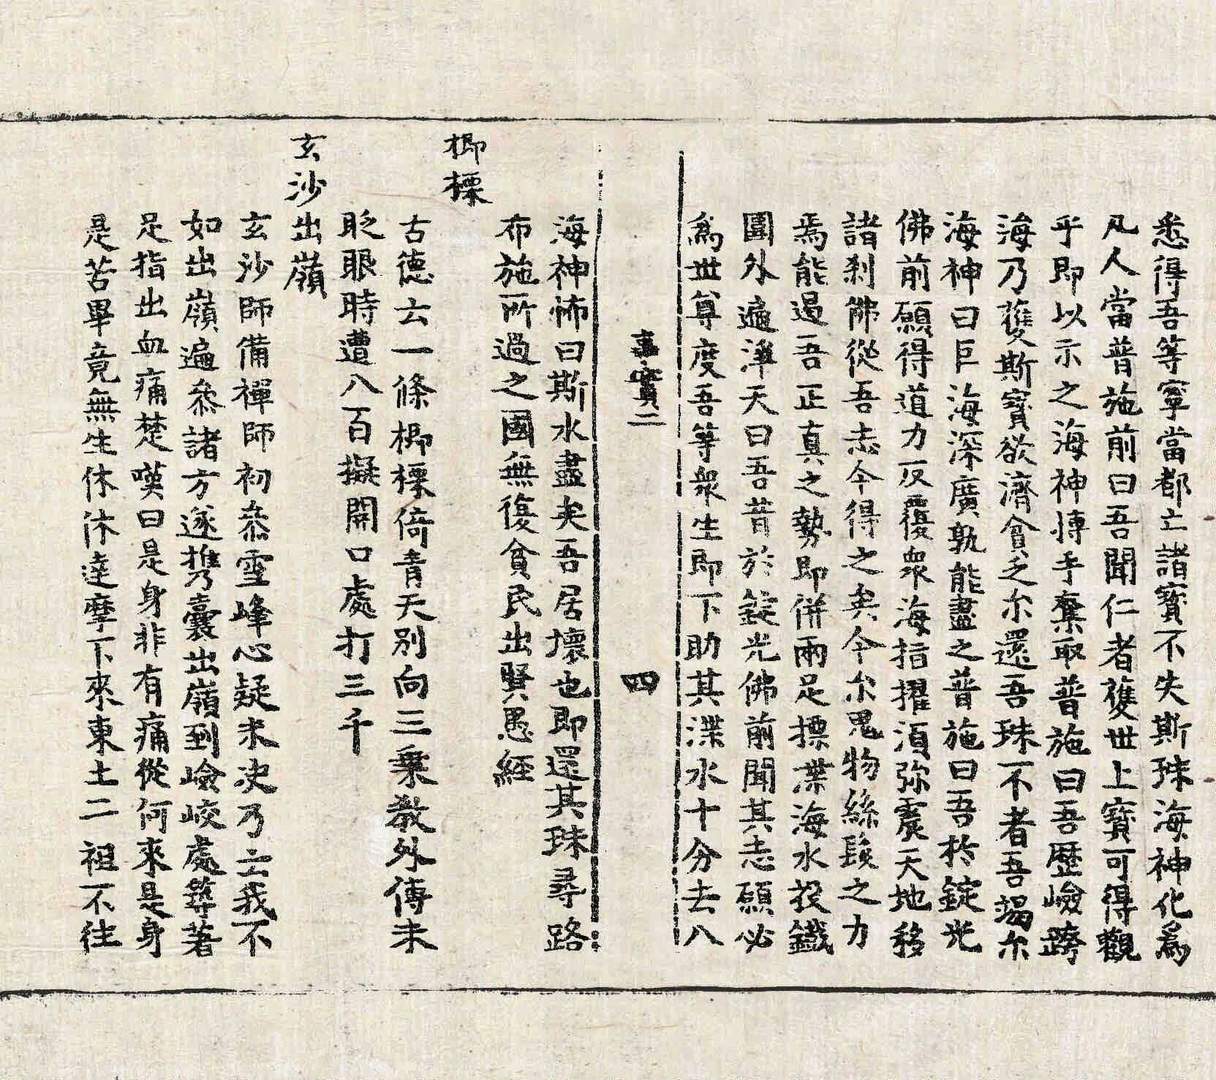 悉得吾等寧當都亡諸寶不失斯珠海神化為
凡人當普施前曰吾聞仁者獲世上寶可得觀
乎即以示之海神慱手奪取普施曰吾歷嶮跨
海乃獲斯寶欲濟貧乏尓還吾珠不者吾竭尓
海神曰巨海深廣孰能盡之普施曰吾於錠光
佛前願得道力反覆衆海指擢須弥震天地移
諸剎佛從吾志今得之矣今尓鬼物絲髮之力
焉能遏吾正真之勢即併兩足摽渫海水投鐵
圍外遍淨天曰吾昔於錠光佛前聞其志願必
為世尊度吾等衆生即下助其渫水十分去八
事實二 四
海神怖曰斯水盡矣吾居壞也即還其珠尋路
布施所過之國無復貧民出賢愚經
楖㮚
古德云一條楖㮚倚青天別向三乗教外傳未
眨眼時遭八百擬開口處打三千
玄沙出嶺
玄沙師備禪師初叅雪峰心疑未决乃云我不
如出嶺遍叅諸方遂携囊出嶺到嶮峻處築著
足指出血痛楚嘆曰是身非有痛從何來是身
是苦畢竟無生休休達摩不來東土二祖不往